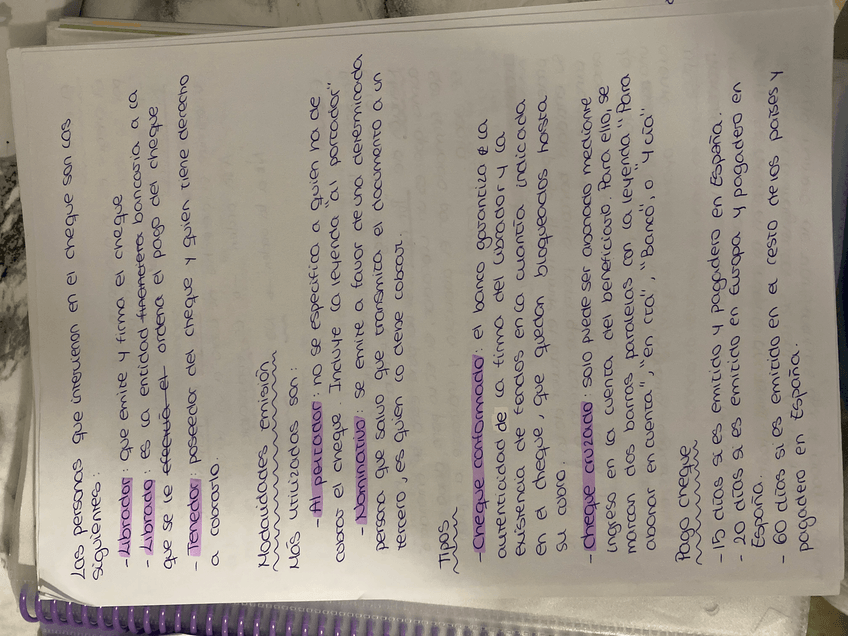 Las personas que intervienen en el cheque son las
siguientes:
- Librador: que emite y firma el cheque
- Librado: es la entidad financiera bancaria a la
que se le efectua el ordena el pago del cheque
- Tenedor: poseedor del cheque y quien tiene derecho
a cobrarlo.
Modalidades emisión
Más utilizadas son:
- Al portador: no se especifica a quien ha de
cobrar el cheque. Incluye la leyenda "al portador"
- Nominativo: se emite a favor de una determinada
persona que salvo que transmita el documento a un
tercero, es quien lo debe cobrar.
Tipos
- Cheque conformado: el banco garantiza la
autenticidad de la firma del librador y la
existencia de fondos en la cuantía indicada
en el cheque, que quedan bloqueados hasta
su cobro.
- Cheque cruzado: solo puede ser abonado mediante
ingreso en la cuenta del beneficiario. Para ello, se
marcan dos barras paralelas con la leyenda "Para
abonar en cuenta", "en cta", "Banco", o "y cía"
Pago cheque
- 15 días si es emitido y pagadero en España.
- 20 días si es emitido en Europa y pagadero en
España.
- 60 días si es emitido en el resto de los países y
pagadero en España.